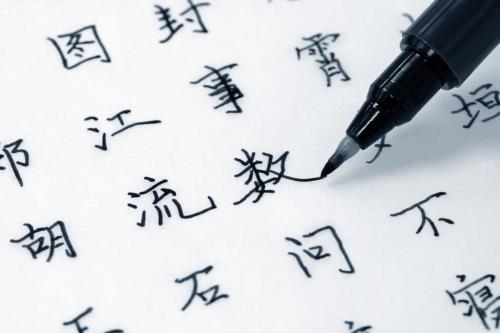 图 封
江 事 霄
胡 流 数 垣
石 问 不